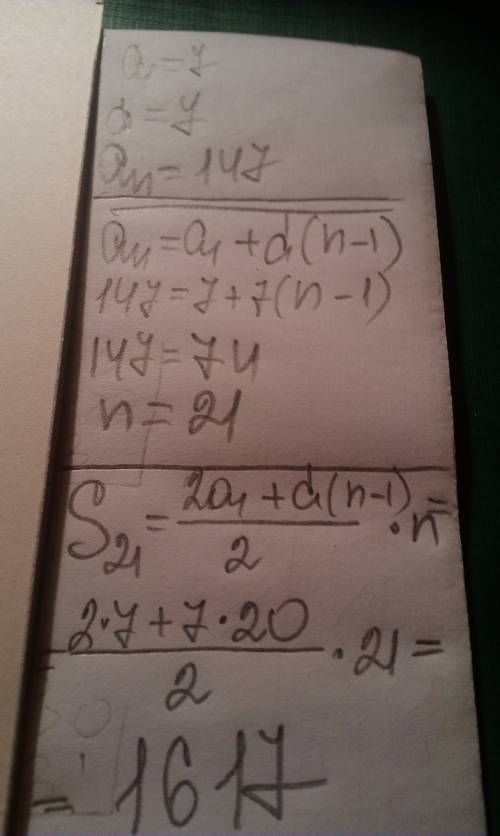 a = 7
d = 7
an = 147
an = a1 + d(n-1)
147 = 7 + 7(n-1)
147 = 7n
n = 21
S21 = (2a1 + d(n-1))/2 · n =
= (2·7 + 7·20)/2 · 21 =
= 1617